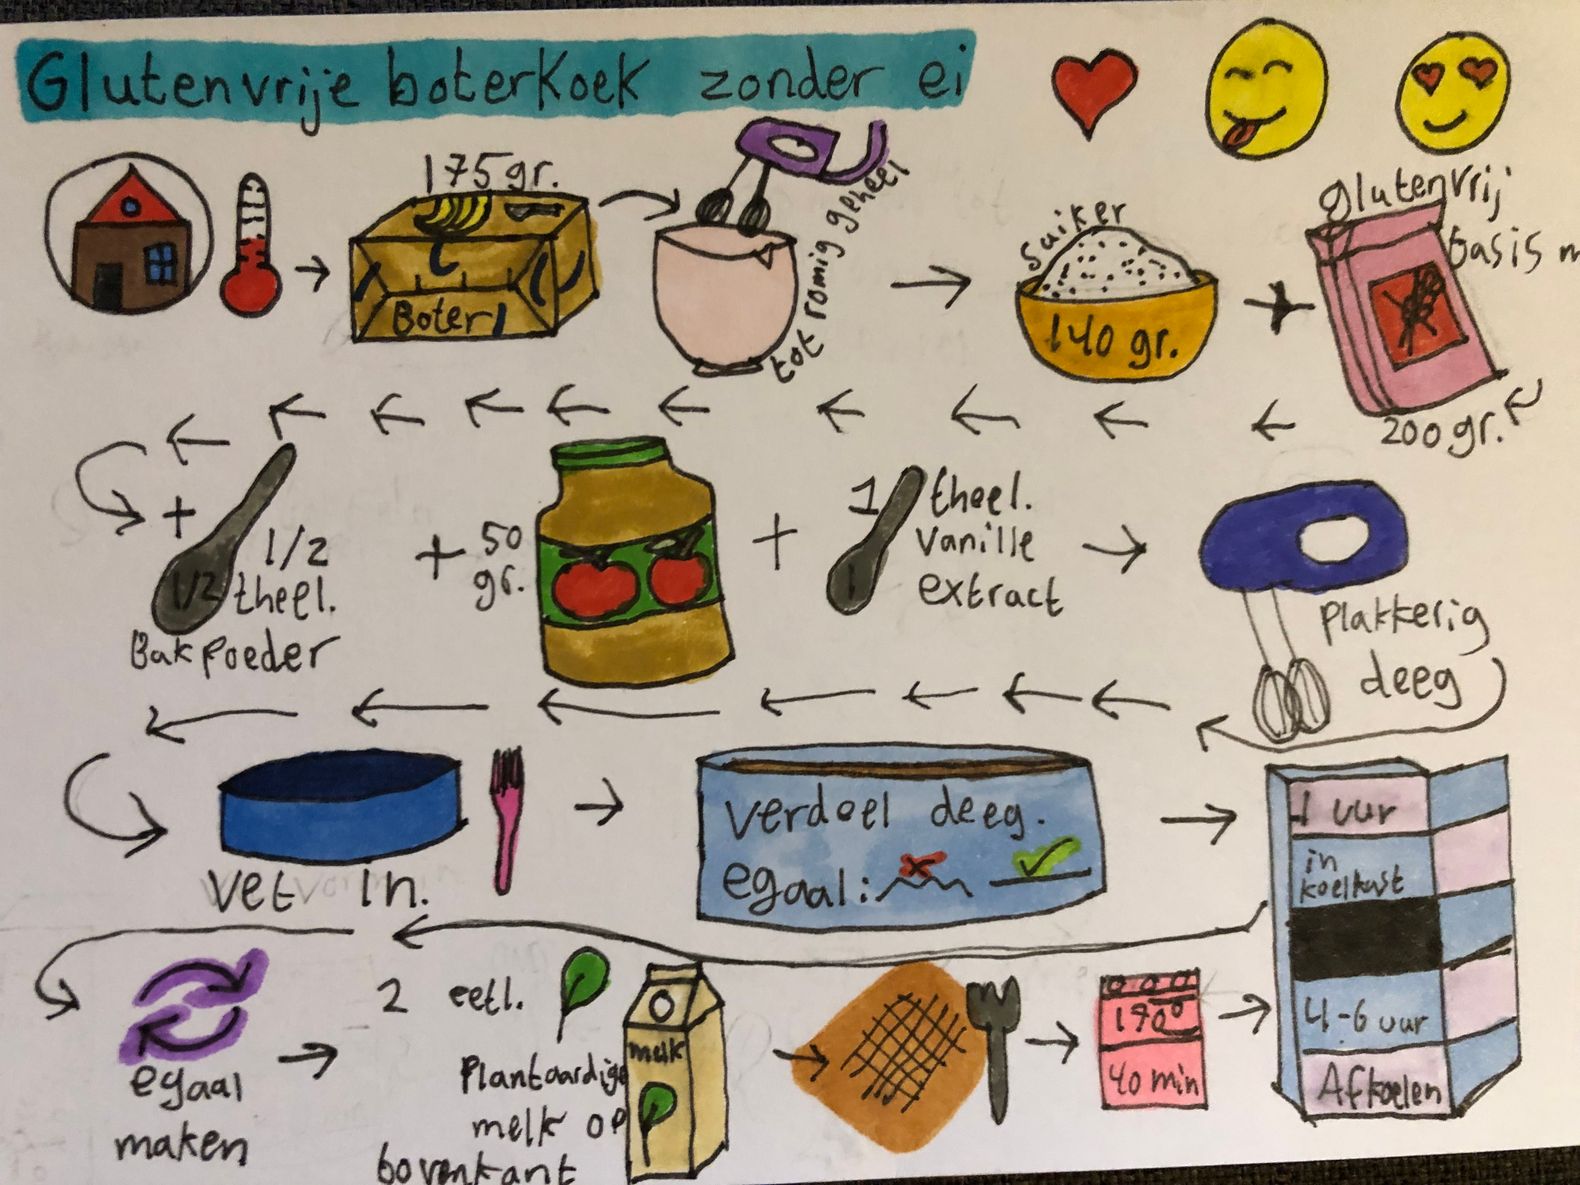 Glutenvrije boterkoek zonder ei
175 gr.
Boter
tot romig geheel
suiker
140 gr.
+
glutenvrij
basis m
200 gr.
+
1/2
1/2
theel.
Bakpoeder
+
50
gr.
+
1
1
theel.
vanille
extract
plakkerig
deeg
vet in.
verdeel deeg.
egaal:
1 uur
in
koelkast
4-6 uur
Afkoelen
egaal
maken
2 eetl.
plantaardige
melk op
bovenkant
melk
40 min